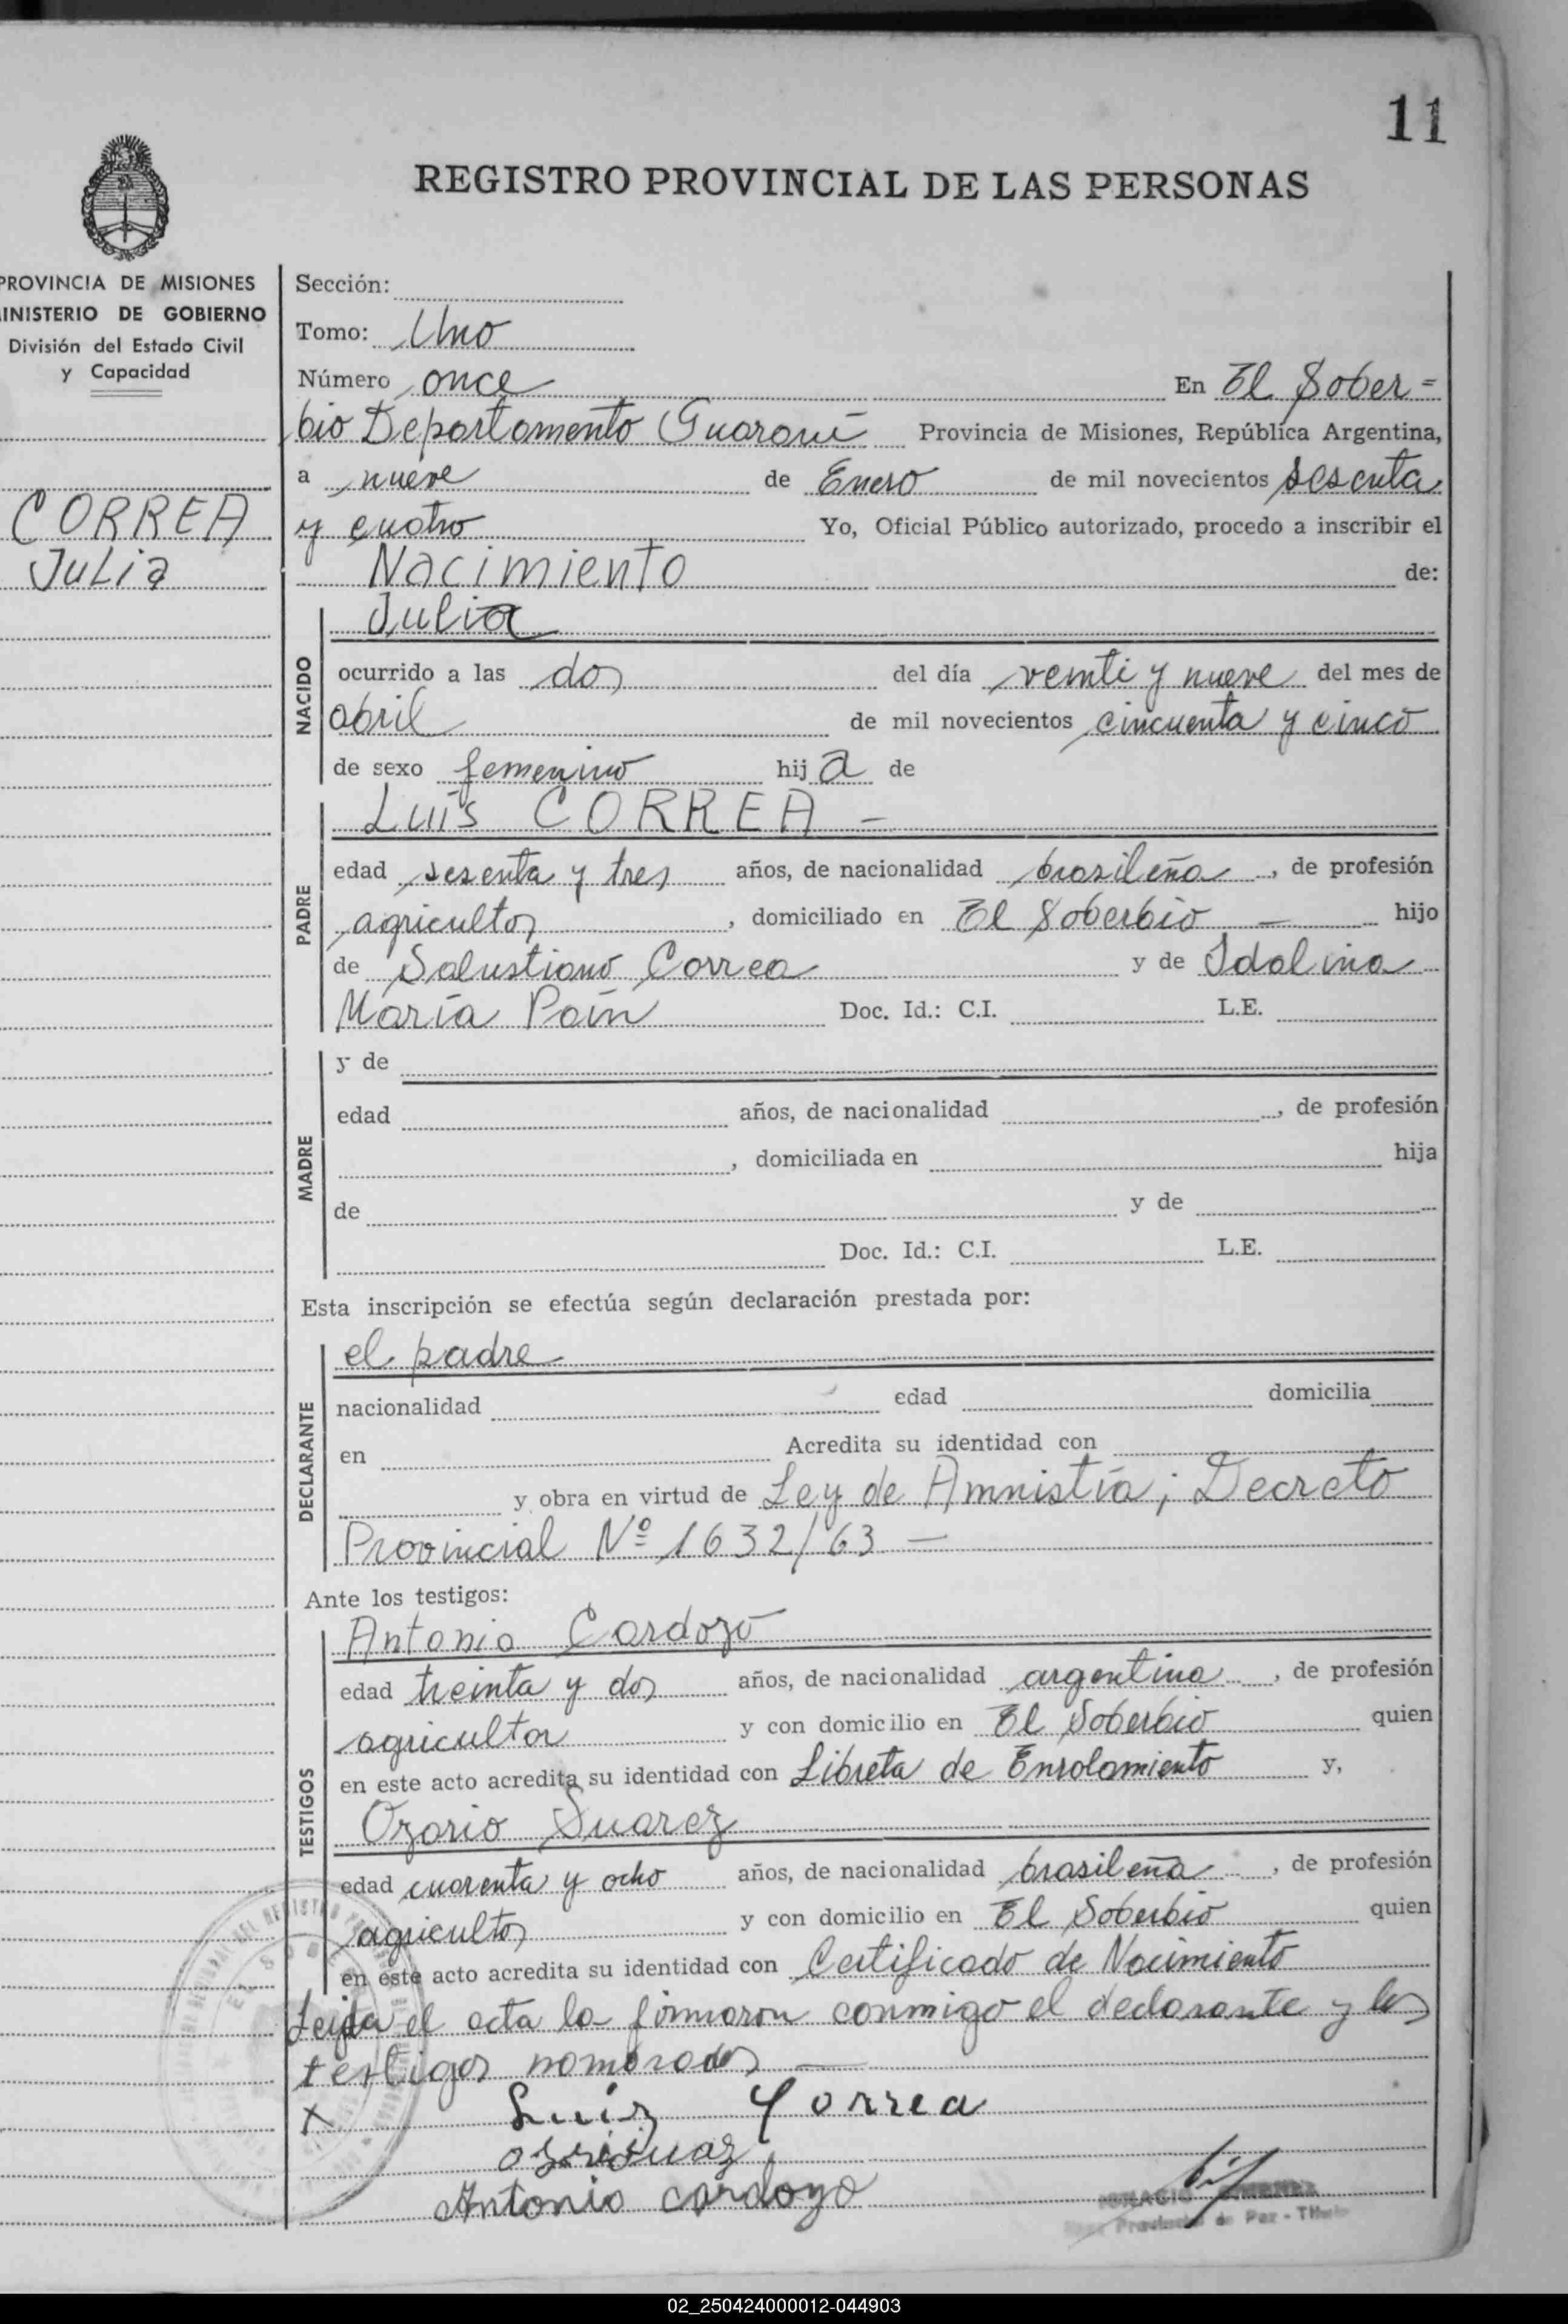 11
REGISTRO PROVINCIAL DE LAS PERSONAS
PROVINCIA DE MISIONES
MINISTERIO DE GOBIERNO
División del Estado Civil
y Capacidad
CORREA
Julia
Sección:
Tomo: Uno
Número once En El Sober=
bio Departamento Guaraní Provincia de Misiones, República Argentina,
a nueve de Enero de mil novecientos sesenta
y cuatro Yo, Oficial Público autorizado, procedo a inscribir el
Nacimiento de:
NACIDO
Julia
ocurrido a las dos del día veinti y nueve del mes de
abril de mil novecientos cincuenta y cinco
de sexo femenino hija de
PADRE
Luís CORREA -
edad sesenta y tres años, de nacionalidad brasileña, de profesión
agricultor, domiciliado en El Soberbio — hijo
de Salustiano Correa y de Idalina
María Paín Doc. Id.: C.I. L.E.
MADRE
y de
edad años, de nacionalidad , de profesión
, domiciliada en hija
de y de
Doc. Id.: C.I. L.E.
Esta inscripción se efectúa según declaración prestada por:
DECLARANTE
el padre
nacionalidad edad domicilia
en Acredita su identidad con
y obra en virtud de Ley de Amnistía; Decreto
Provincial Nº 1632/63 —
Ante los testigos:
TESTIGOS
Antonio Cardozo
edad treinta y dos años, de nacionalidad argentina, de profesión
agricultor y con domicilio en El Soberbio quien
en este acto acredita su identidad con Libreta de Enrolamiento y,
Ozorio Suarez
edad cuarenta y ocho años, de nacionalidad brasileña, de profesión
agricultor y con domicilio en El Soberbio quien
en este acto acredita su identidad con Certificado de Nacimiento
Leida el acta la firmaron conmigo el declarante y los
testigos nombrados —
X Luiz Correa
Antonio cardozo
Paz - Titular
02_250424000012-044903